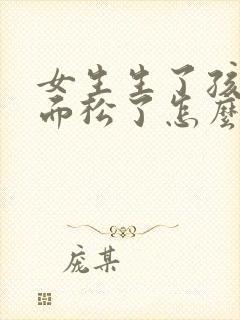 女生生了孩
而松了怎麼
庞某